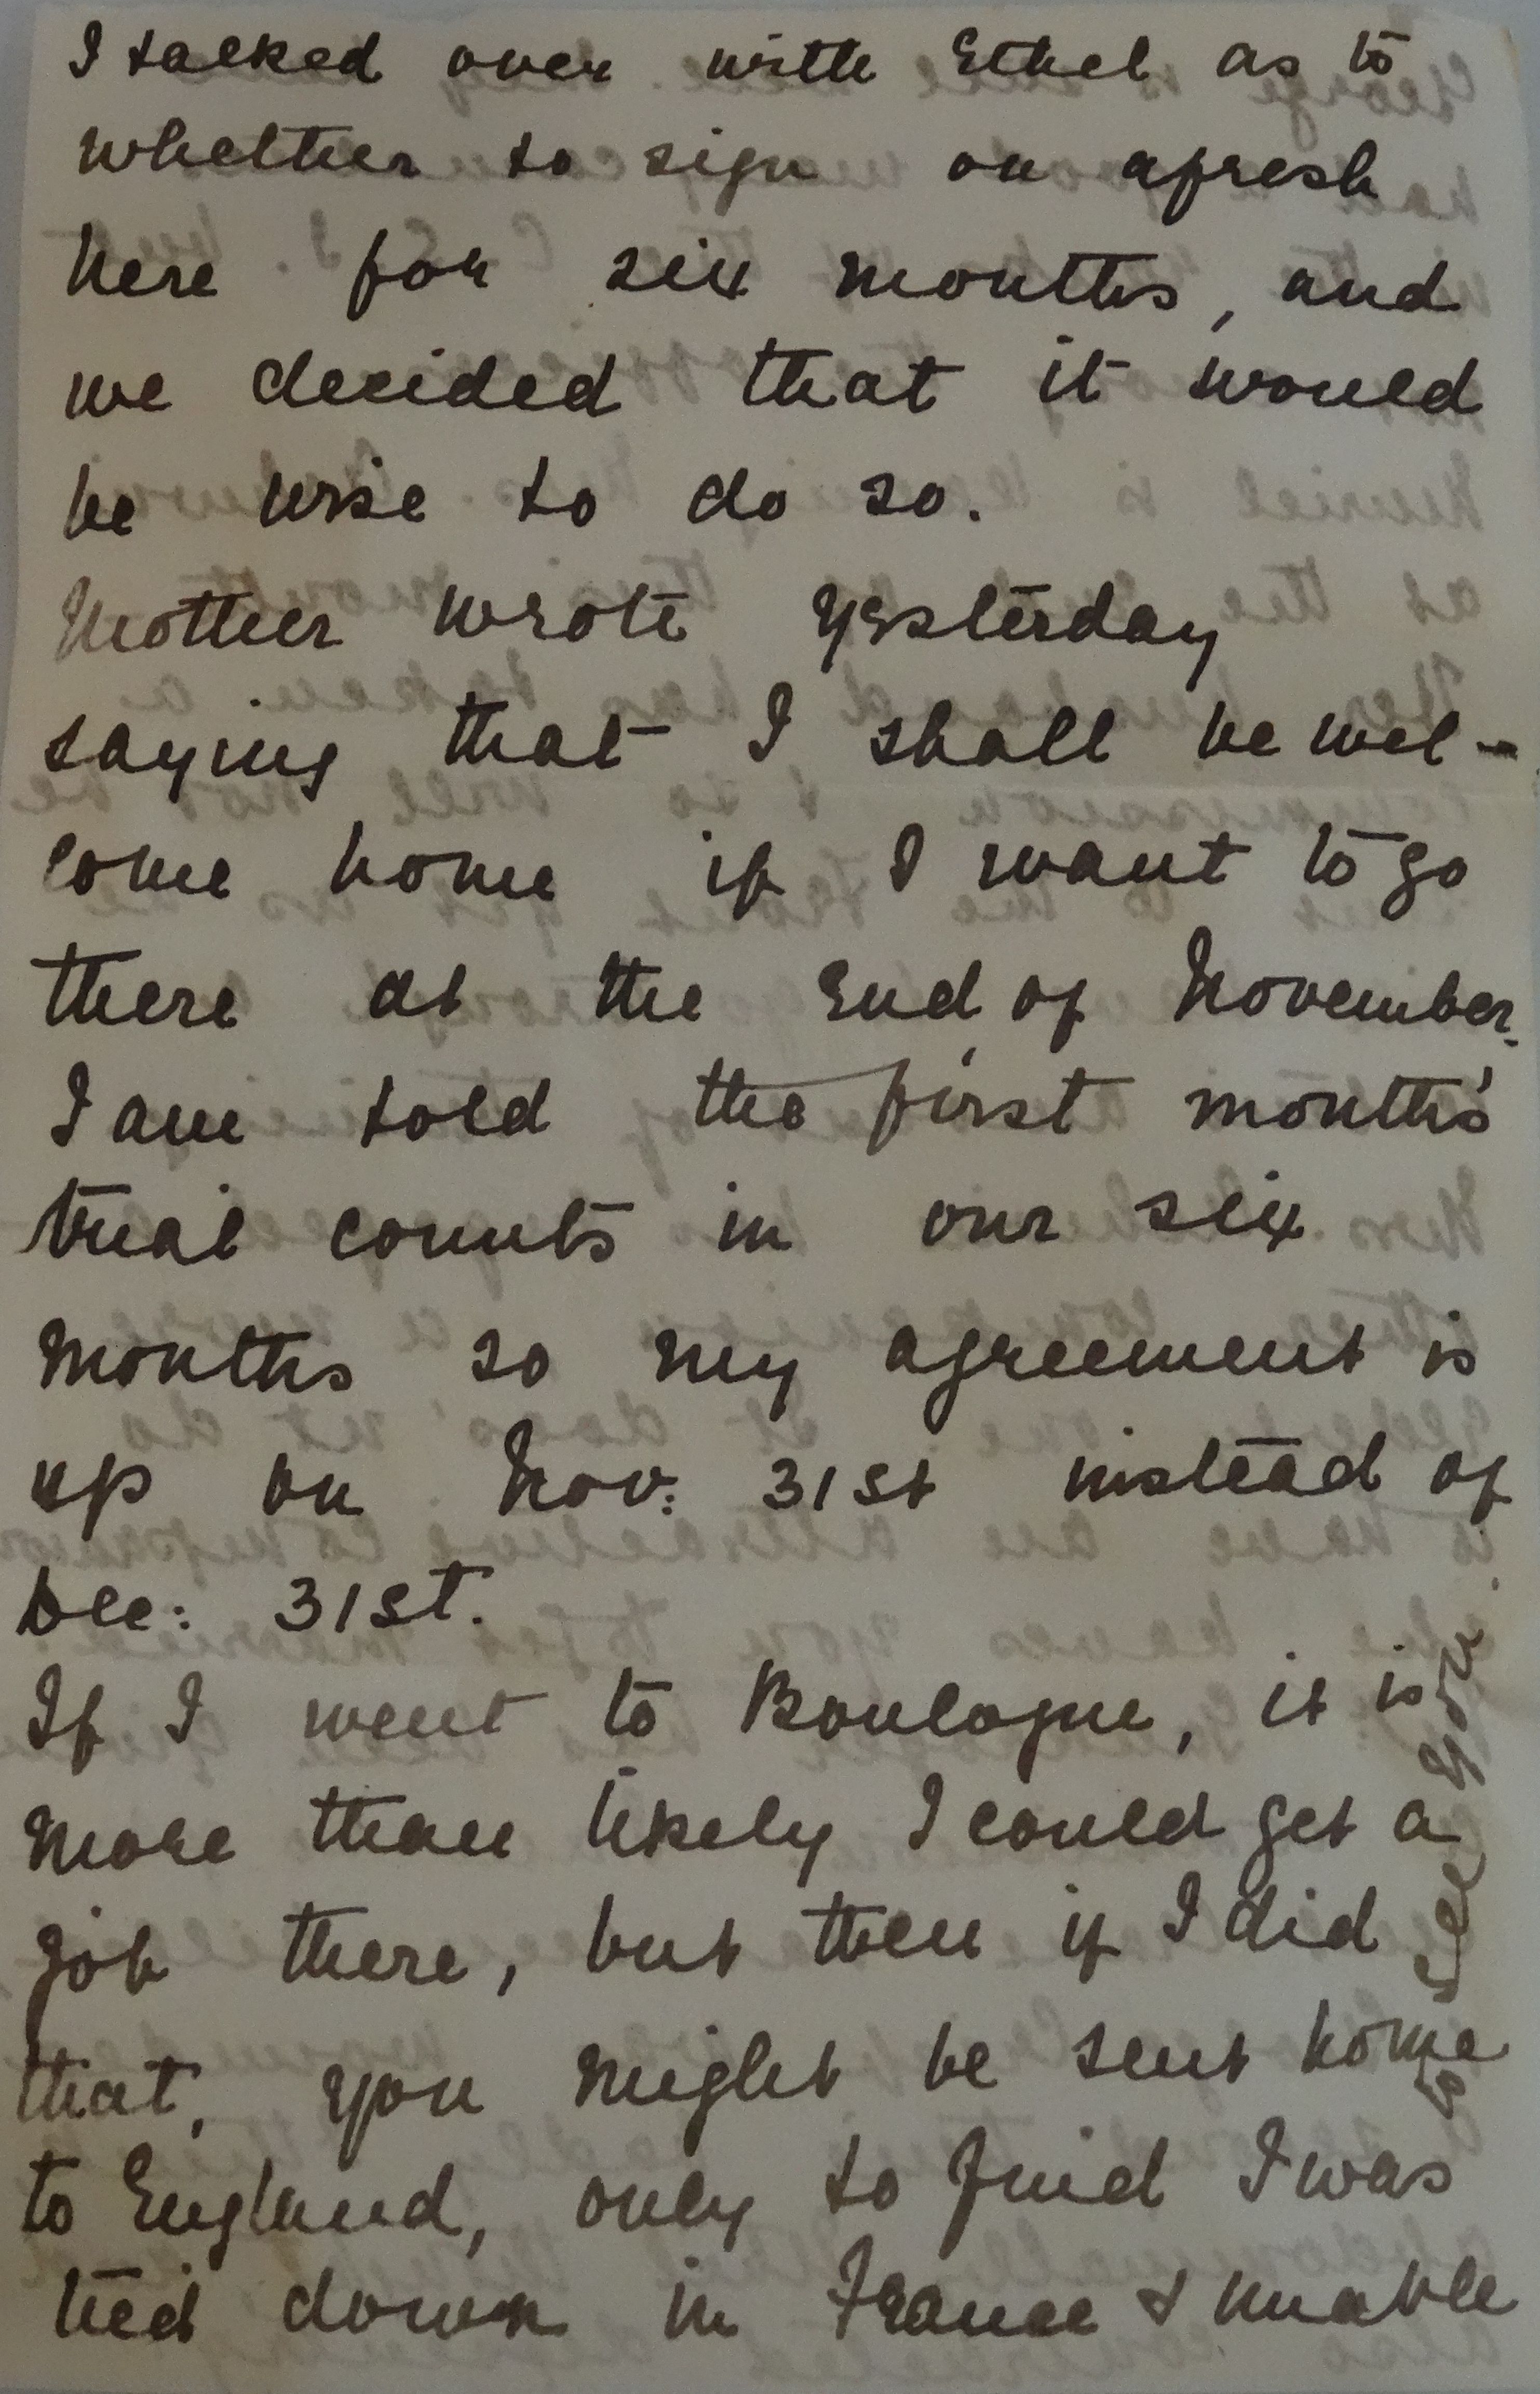 I talked over with Ethel as to
whether to sign on afresh
here for six months, and
we decided that it would
be wise to do so.
Mother wrote yesterday
saying that I shall be wel-
come home if I want to go
there at the end of November.
I am told the first months'
trial counts in our six
months so my agreement is
up on Nov: 31st instead of
Dec: 31st.
If I went to Boulogne, it is
more than likely I could get a
job there, but then if I did
that, you might be sent home
to England, only to find I was
tied down in France & unable
to see you.